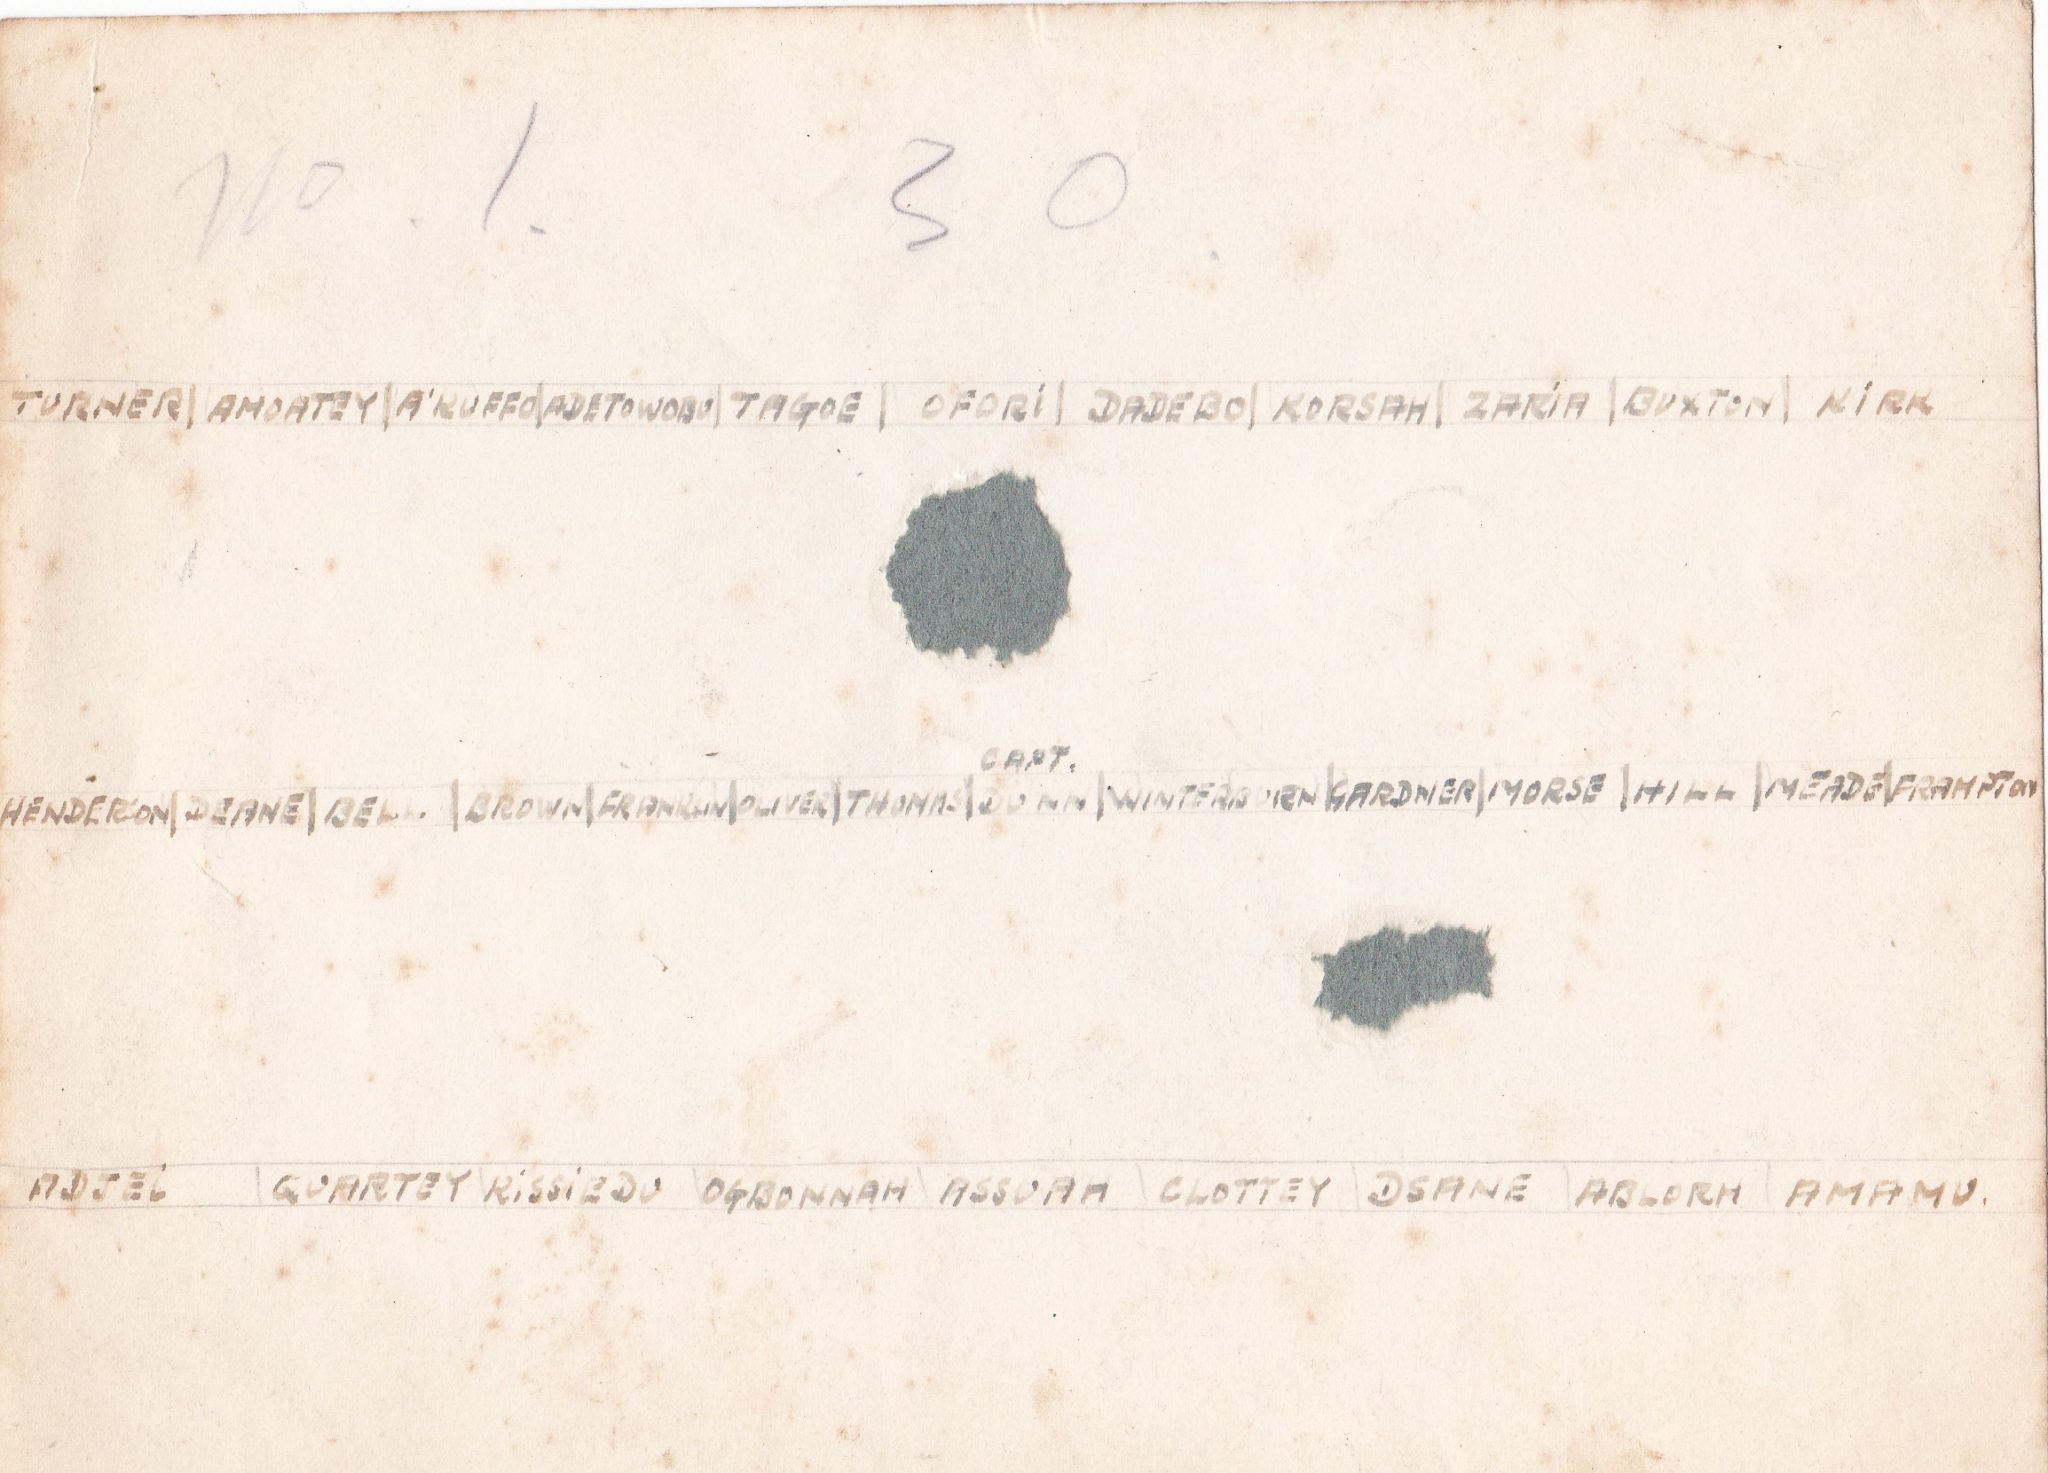 No. 1. 30
TURNER| AMOATEY |A'KUFFO|ADETOWOBO| TAGOE | OFORI | DADEBO | KORSAH | ZARIA | BUXTON | KIRK
CAPT.
HENDERSON| DEANE | BELL | BROWN | FRANKLIN |OLIVER| THOMAS | DUNN | WINTERBURN |GARDNER| MORSE | HILL | MEADE |FRAMPTON
ADJEI | QUARTEY | KISSIEDU | OGBONNAH | ASSUAH | CLOTTEY | DSANE | ABLORH | AMAMU.